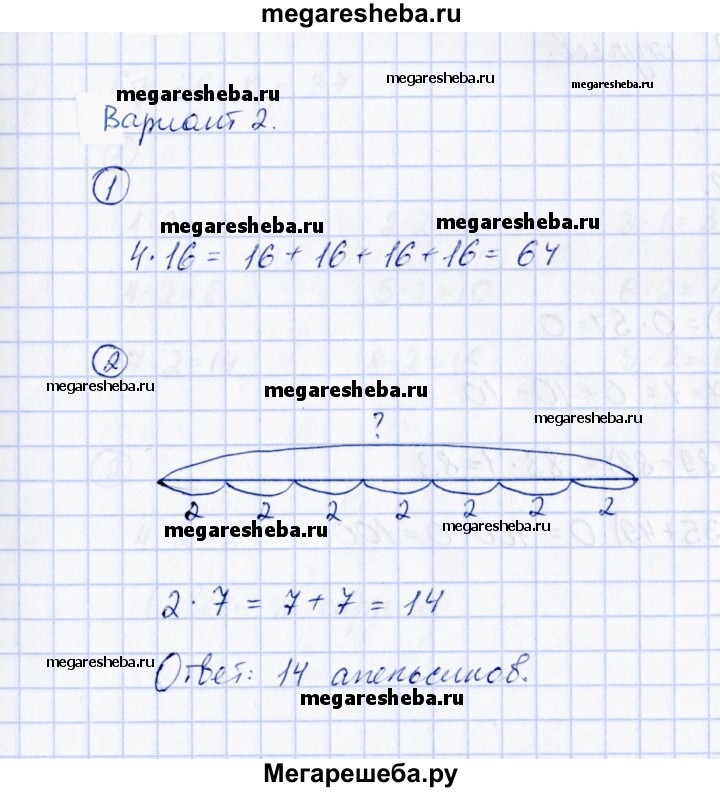 megaresheba.ru
megaresheba.ru
megaresheba.ru
megaresheba.ru
Вариант 2.
1
megaresheba.ru
megaresheba.ru
4·16 = 16 + 16 + 16 + 16 = 64
2
megaresheba.ru
megaresheba.ru
megaresheba.ru
?
2 2 2 2 2 2 2
megaresheba.ru
megaresheba.ru
2·7 = 7+7 = 14
megaresheba.ru
Ответ: 14 апельсинов.
megaresheba.ru
Мегарешеба.ру